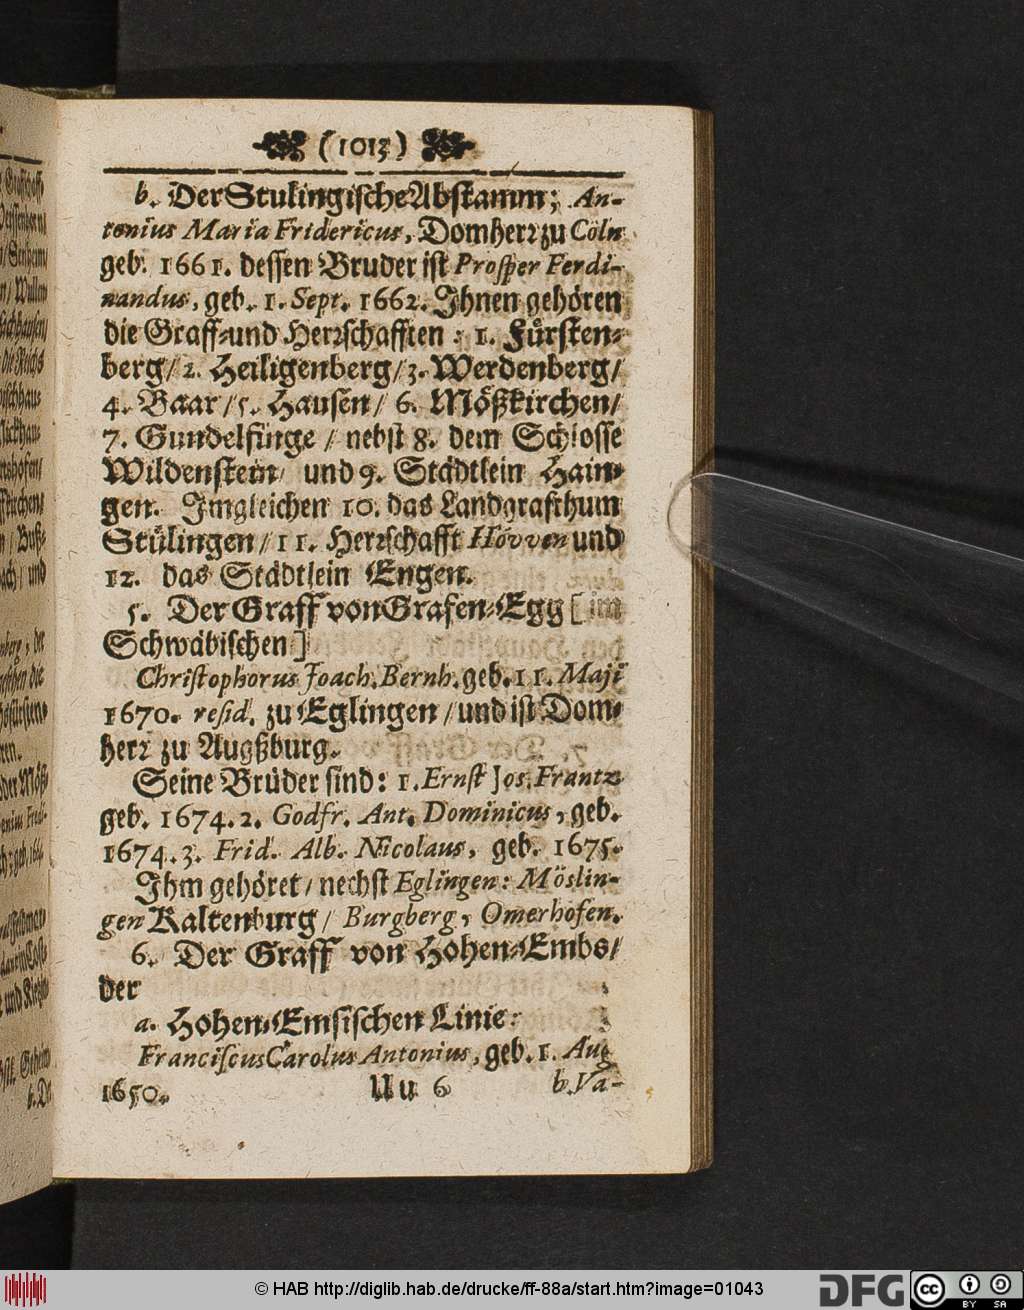 (1013)
b. Der Stulingische Abstamm; An-
tonius Maria Fridericus, Domherr zu Cöln
geb. 1661. dessen Bruder ist Prosper Ferdi-
nandus, geb. 1. Sept. 1662. Ihnen gehören
die Graff- und Herrschafften : 1. Fürsten-
berg / 2. Heiligenberg / 3. Werdenberg /
4. Baar / 5. Hausen / 6. Mößkirchen /
7. Gundelfinge / nebst 8. dem Schlosse
Wildenstein / und 9. Städtlein Hain-
gen. Imgleichen 10. das Landgrafthum
Stülingen / 11. Herrschafft Hövven und
12. das Städtlein Engen.
5. Der Graff von Grafen-Egg [ im
Schwäbischen ]
Christophorus Joach. Bernh. geb. 11. Maji
1670. resid. zu Eglingen / und ist Dom-
herr zu Augßburg.
Seine Brüder sind: 1. Ernst Jos. Frantz
geb. 1674. 2. Godfr. Ant. Dominicus, geb.
1674. 3. Frid. Alb. Nicolaus, geb. 1675.
Ihm gehöret / nechst Eglingen: Möslin-
gen Kaltenburg / Burgberg, Omerhofen.
6. Der Graff von Hohen-Embs /
der
a. Hohen-Emsischen Linie:
Franciscus Carolus Antonius, geb. 1. Aug
1650.
Uu 6
b. Va-
© HAB http://diglib.hab.de/drucke/ff-88a/start.htm?image=01043
DFG
cc
BY SA